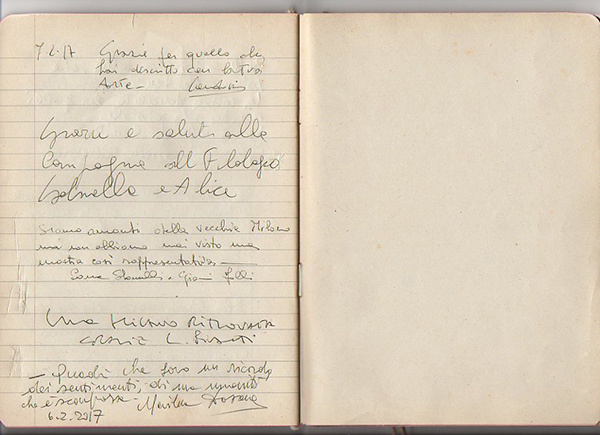 7.2.17 Grazie per quello che
hai descritto con la tua
Arte -
Grazie e saluti alla
Compagna all Filologico
Gabriella e Alice
Siamo amanti della vecchia Milano
ma non abbiamo mai visto una
mostra così rappresentativa
Una Milano Ritrovata
Grazie L.
- Quadri che sono un ricordo
dei sentimenti di una umanità
che è scomparsa - Marilena
6.2.2017